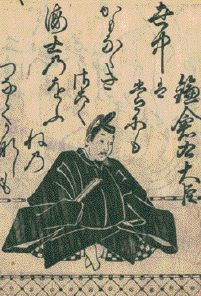 鎌倉右大臣
世中は
常にも
かもななき
さこく
海士乃をふ
ね乃
つなてかなしも